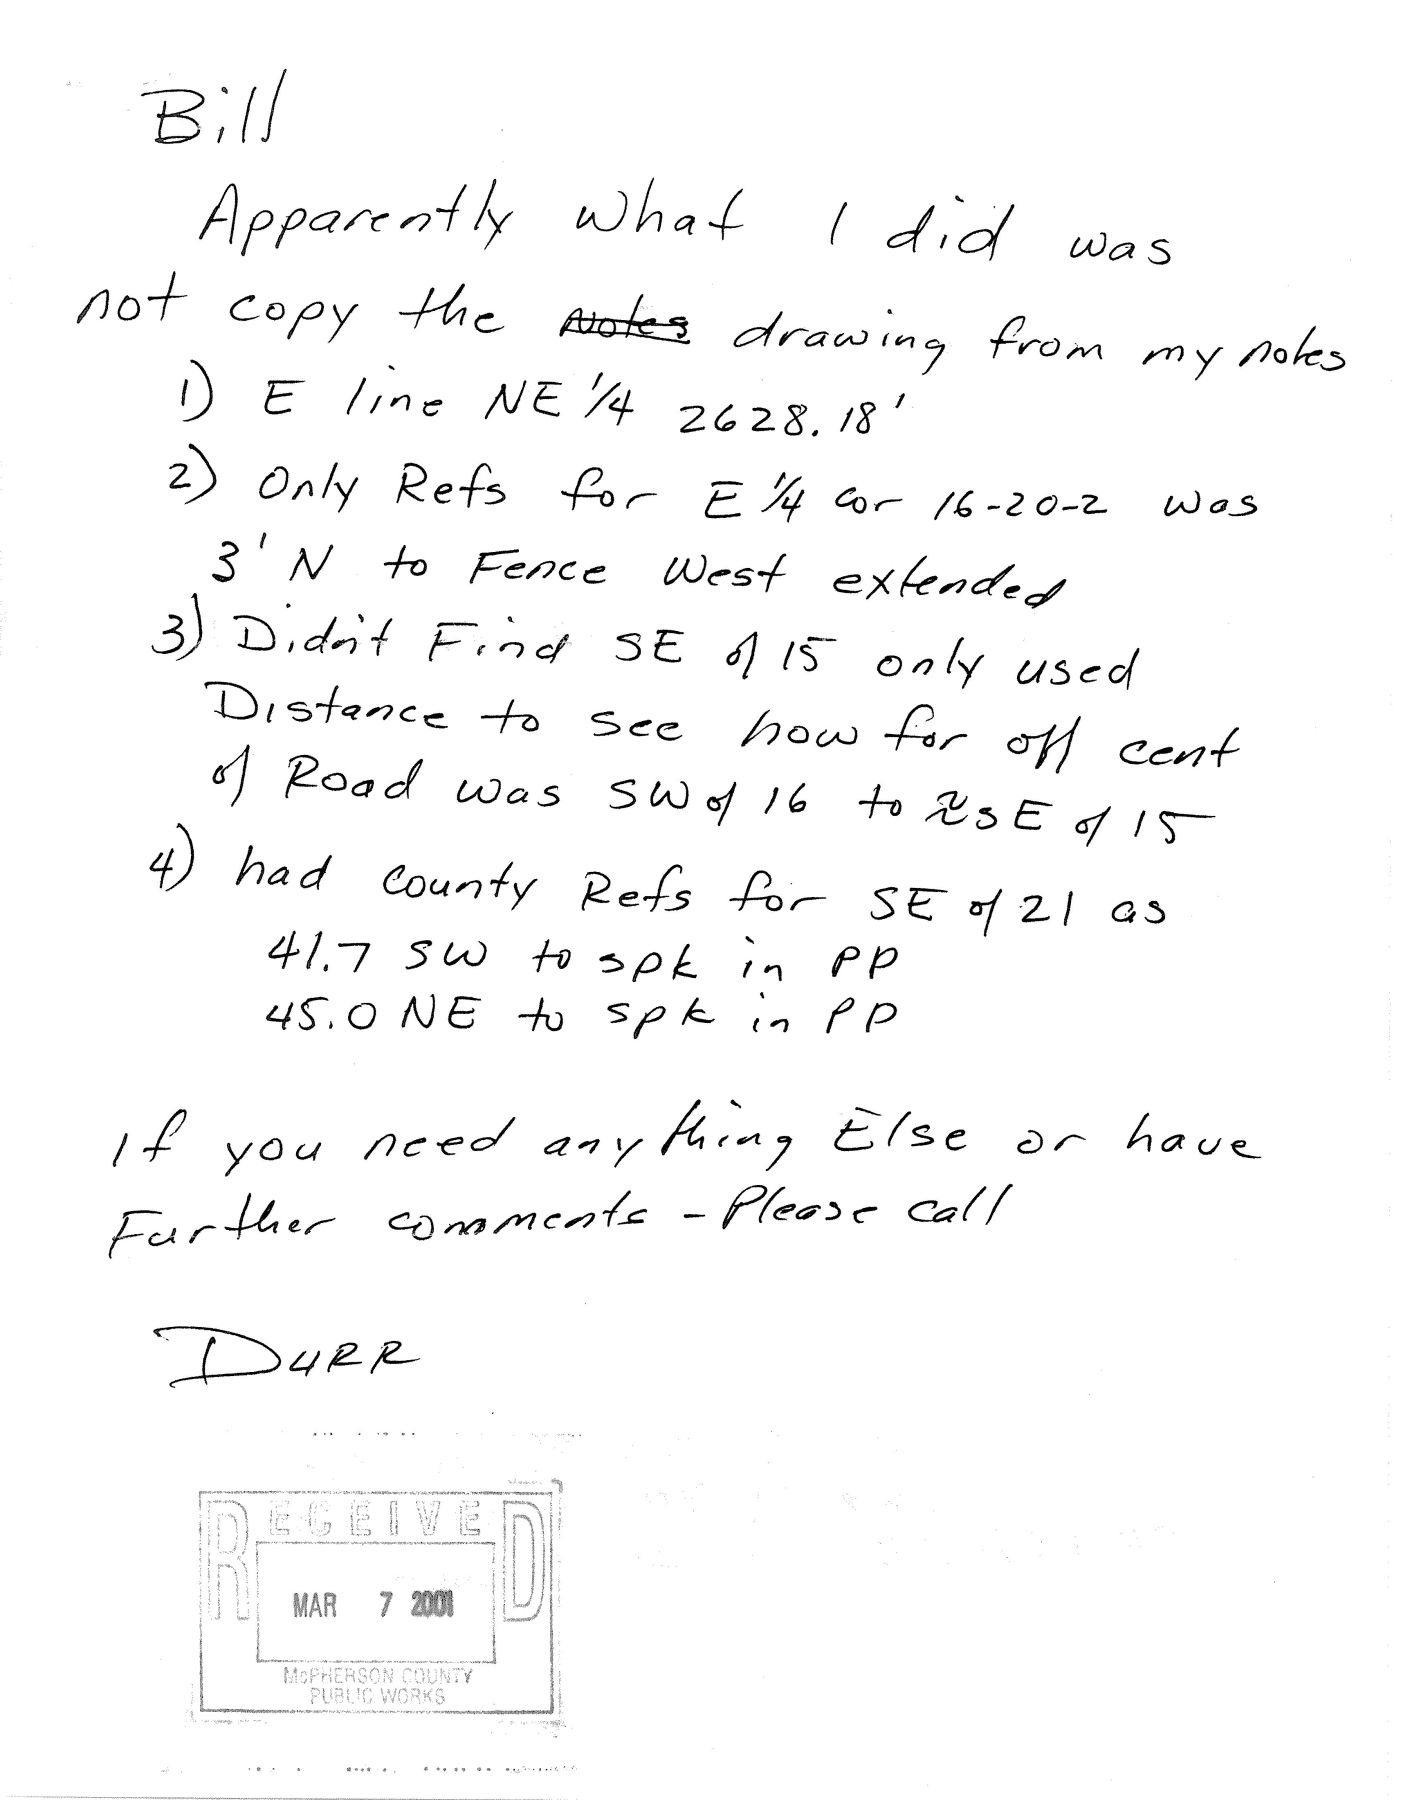 Bill
Apparently what I did was
not copy the notes drawing from my notes
1) E line NE 1/4 2628.18'
2) Only Refs for E 1/4 cor 16-20-2 was
3' N to Fence West extended
3) Didn't Find SE of 15 only used
Distance to see how far off cent
of Road was SW of 16 to ≈ SE of 15
4) had county Refs for SE of 21 as
41.7 SW to spk in PP
45.0 NE to spk in PP
If you need anything Else or have
Further comments - Please call
DURR
RECEIVED
MAR 7 2001
McPHERSON COUNTY
PUBLIC WORKS